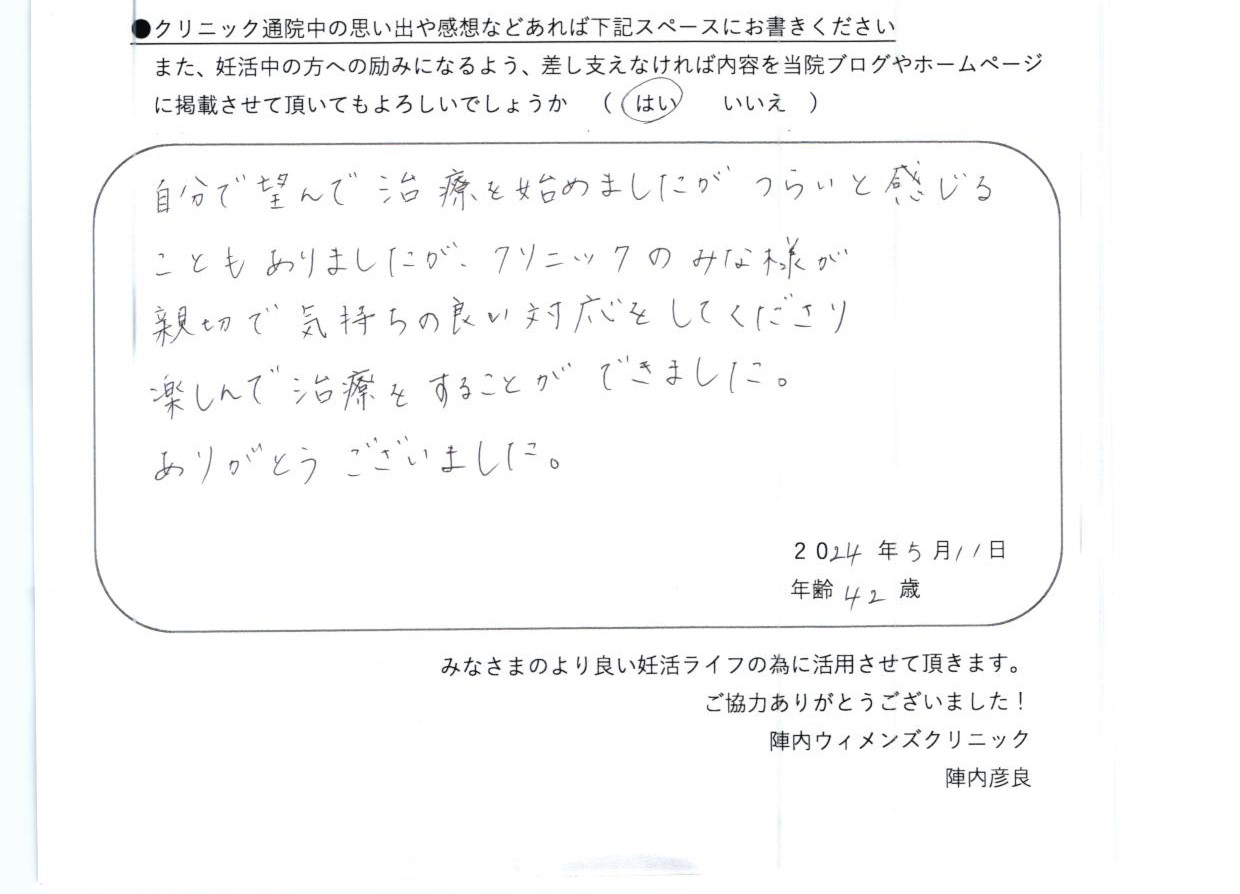 ●クリニック通院中の思い出や感想などあれば下記スペースにお書きください
また、妊活中の方への励みになるよう、差し支えなければ内容を当院ブログやホームページ
に掲載させて頂いてもよろしいでしょうか （ はい　いいえ ）
自分で望んで治療を始めましたがつらいと感じる
こともありましたが、クリニックのみな様が
親切で気持ちの良い対応をしてくださり
楽しんで治療をすることができました。
ありがとうございました。
2024年5月11日
年齢 42 歳
みなさまのより良い妊活ライフの為に活用させて頂きます。
ご協力ありがとうございました！
陣内ウィメンズクリニック
陣内彦良